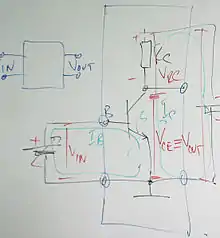 IN
VOUT
RC
VRC
B
IB
VIN
VCE≡VOUT